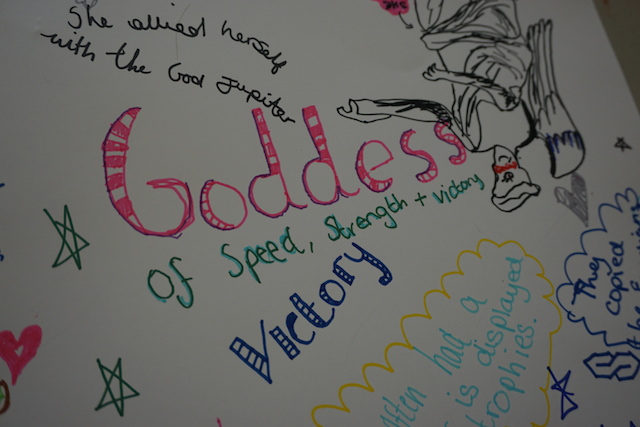 She allied herself
with the God Jupiter
Goddess
Of Speed, Strength + Victory
Victory
often had a
is displayed
trophies.
They
copied